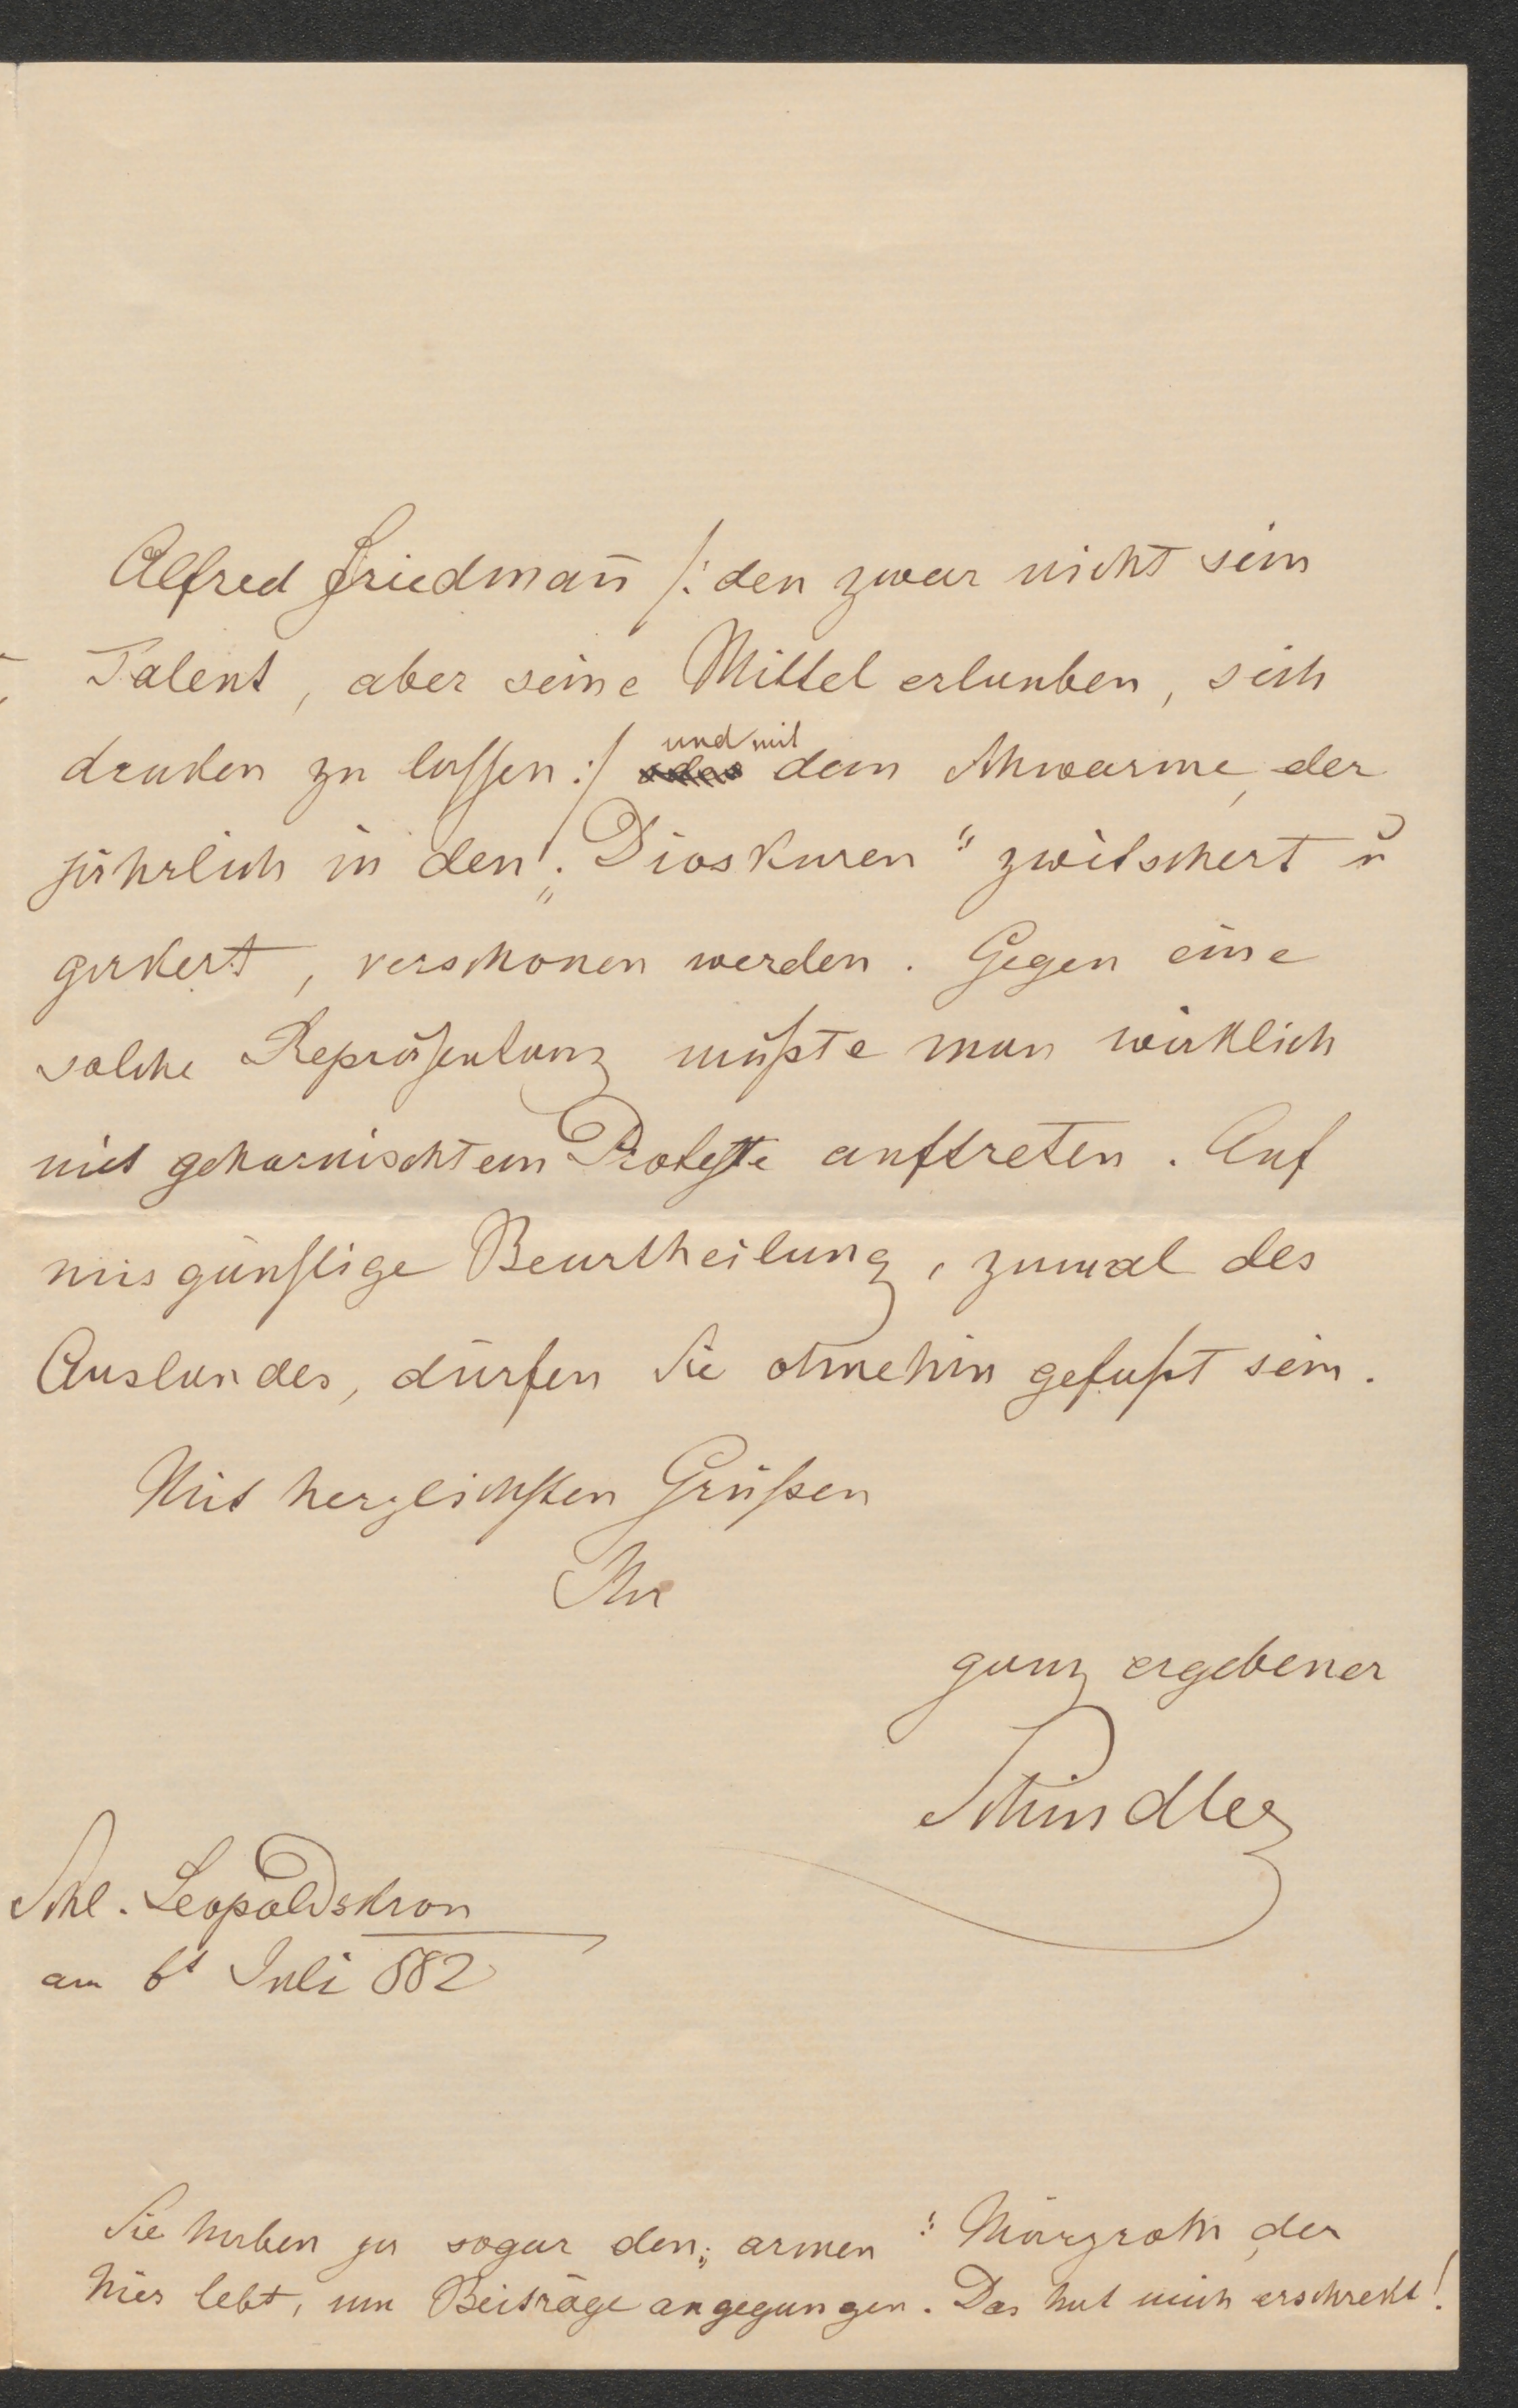 Alfred Friedman̄ /: den zwar nicht sein
Talent, aber seine Mittel erlauben, sich
druken zu lassen :/ und mit dem Schwarme, der
jährlich in den „Dioskuren“ zwitschert u
gakert, verschonen werden. Gegen eine
solche Repräsentanz müßte man wirklich
mit geharnischtem Proteste auftreten. Auf
misgünstige Beurtheilung, zumal des
Auslandes, dürfen Sie ohnehin gefaßt sein.
Mit herzlichsten Grüßen
Ihr
ganz ergebener
Schindler
Schl. Leopoldskron
am 6t Juli 882
Sie haben ja sogar den „armen“ Märzroth, der
hier lebt, um Beiträge angegangen. Das hat mich erschrekt!